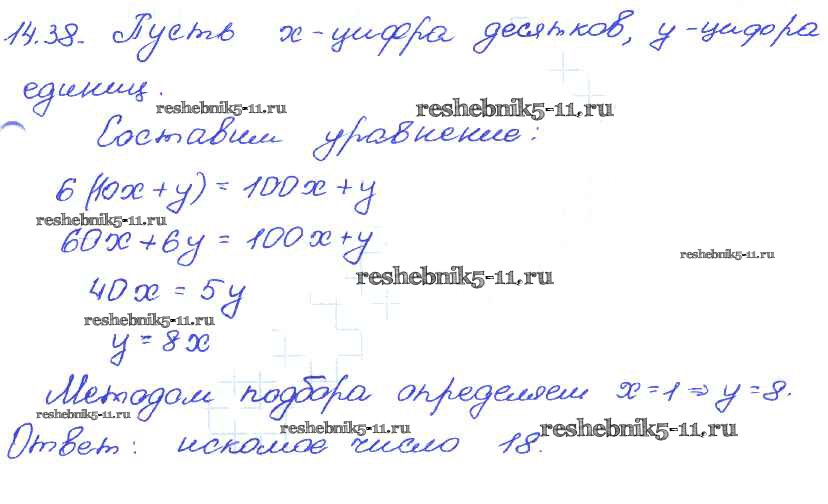 14.38. Пусть x - цифра десятков, y - цифра
единиц.
reshebnik5-11.ru reshebnik5-11.ru
Составим уравнение:
6(10x + y) = 100x + y
reshebnik5-11.ru
60x + 6y = 100x + y
reshebnik5-11.ru
reshebnik5-11.ru
40x = 5y
reshebnik5-11.ru
y = 8x
Методом подбора определяем x = 1 ⇒ y = 8.
reshebnik5-11.ru
reshebnik5-11.ru reshebnik5-11.ru
Ответ: искомое число 18.